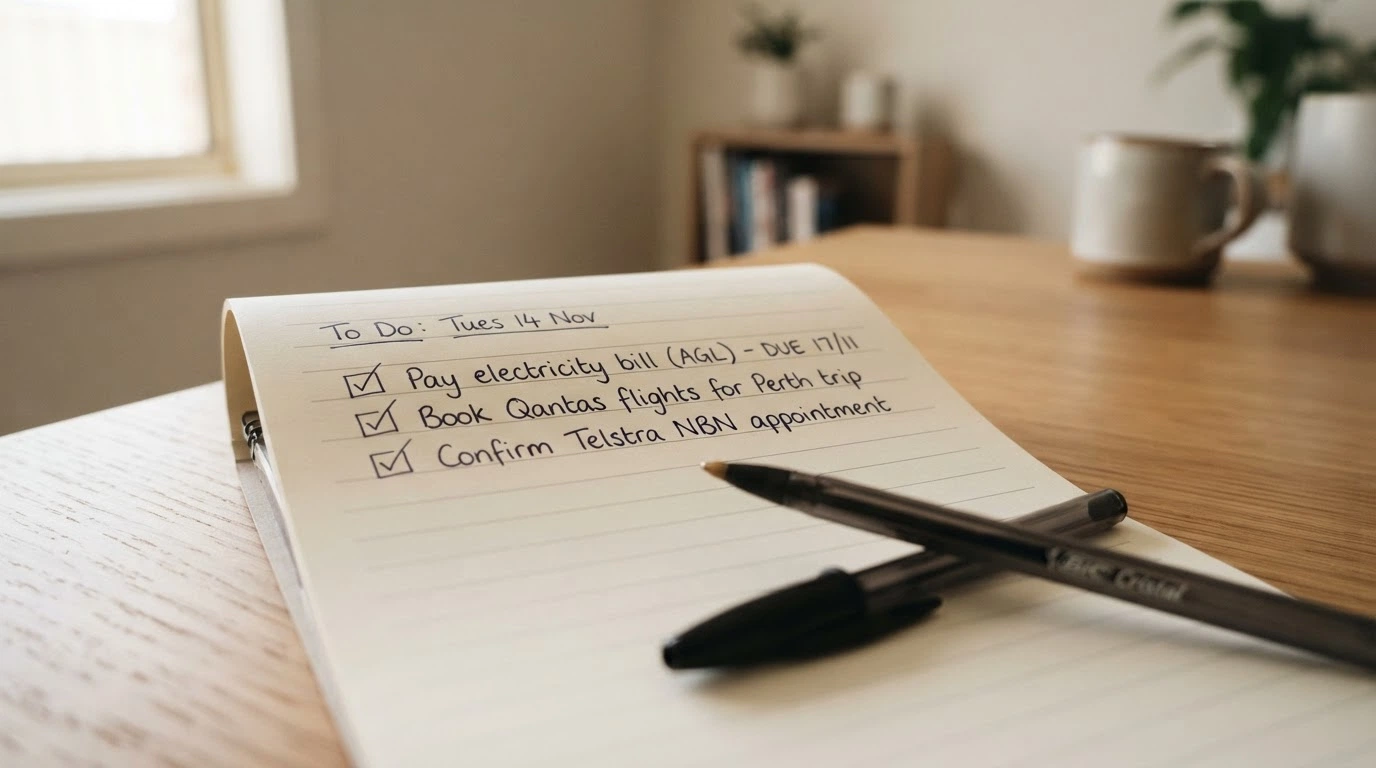 To Do: Tues 14 Nov
☑ Pay electricity bill (AGL) - DUE 17/11
☑ Book Qantas flights for Perth trip
☑ Confirm Telstra NBN appointment
BIC Cristal